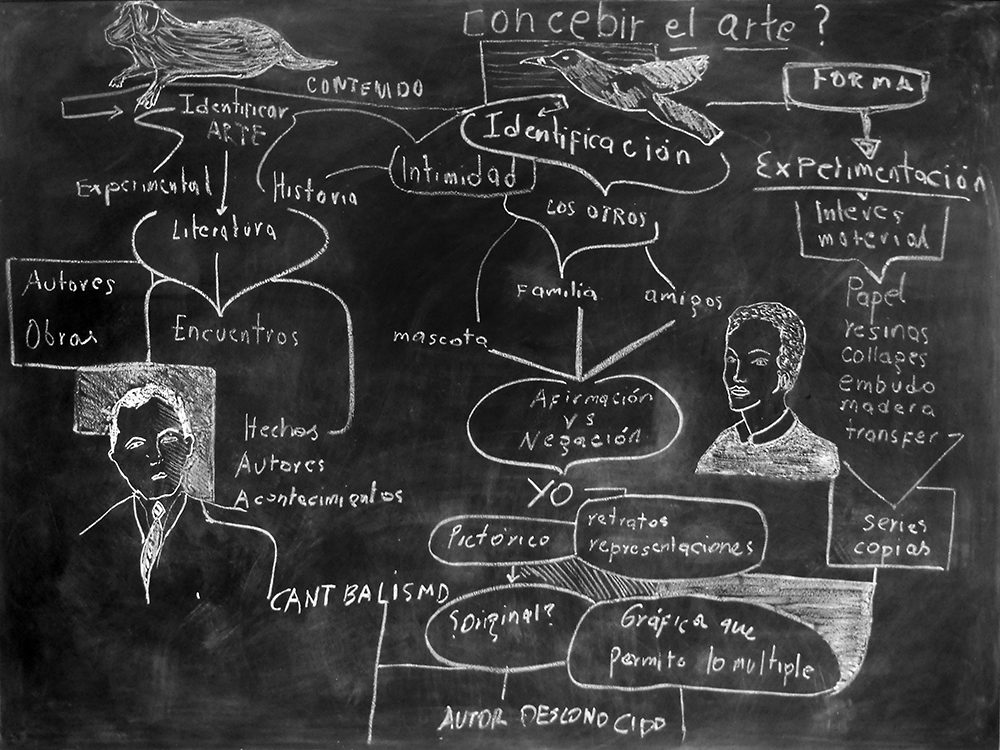 concebir el arte ?
CONTENIDO
FORMA
Identificar
ARTE
Identificación
Experimentación
Intimidad
Experimental
Historia
LOS OTROS
Interes
material
Literatura
Autores
Obras
Encuentros
Familia
amigos
mascota
Papel
resinas
collages
embudo
madera
transfer
Afirmación
vs
Negación
Hechos
Autores
Acontacimientos
YO
Pictórico
retratos
representaciones
series
copias
CANIBALISMO
¿Original?
Gráfica que
permito lo multiple
AUTOR DESCONOCIDO